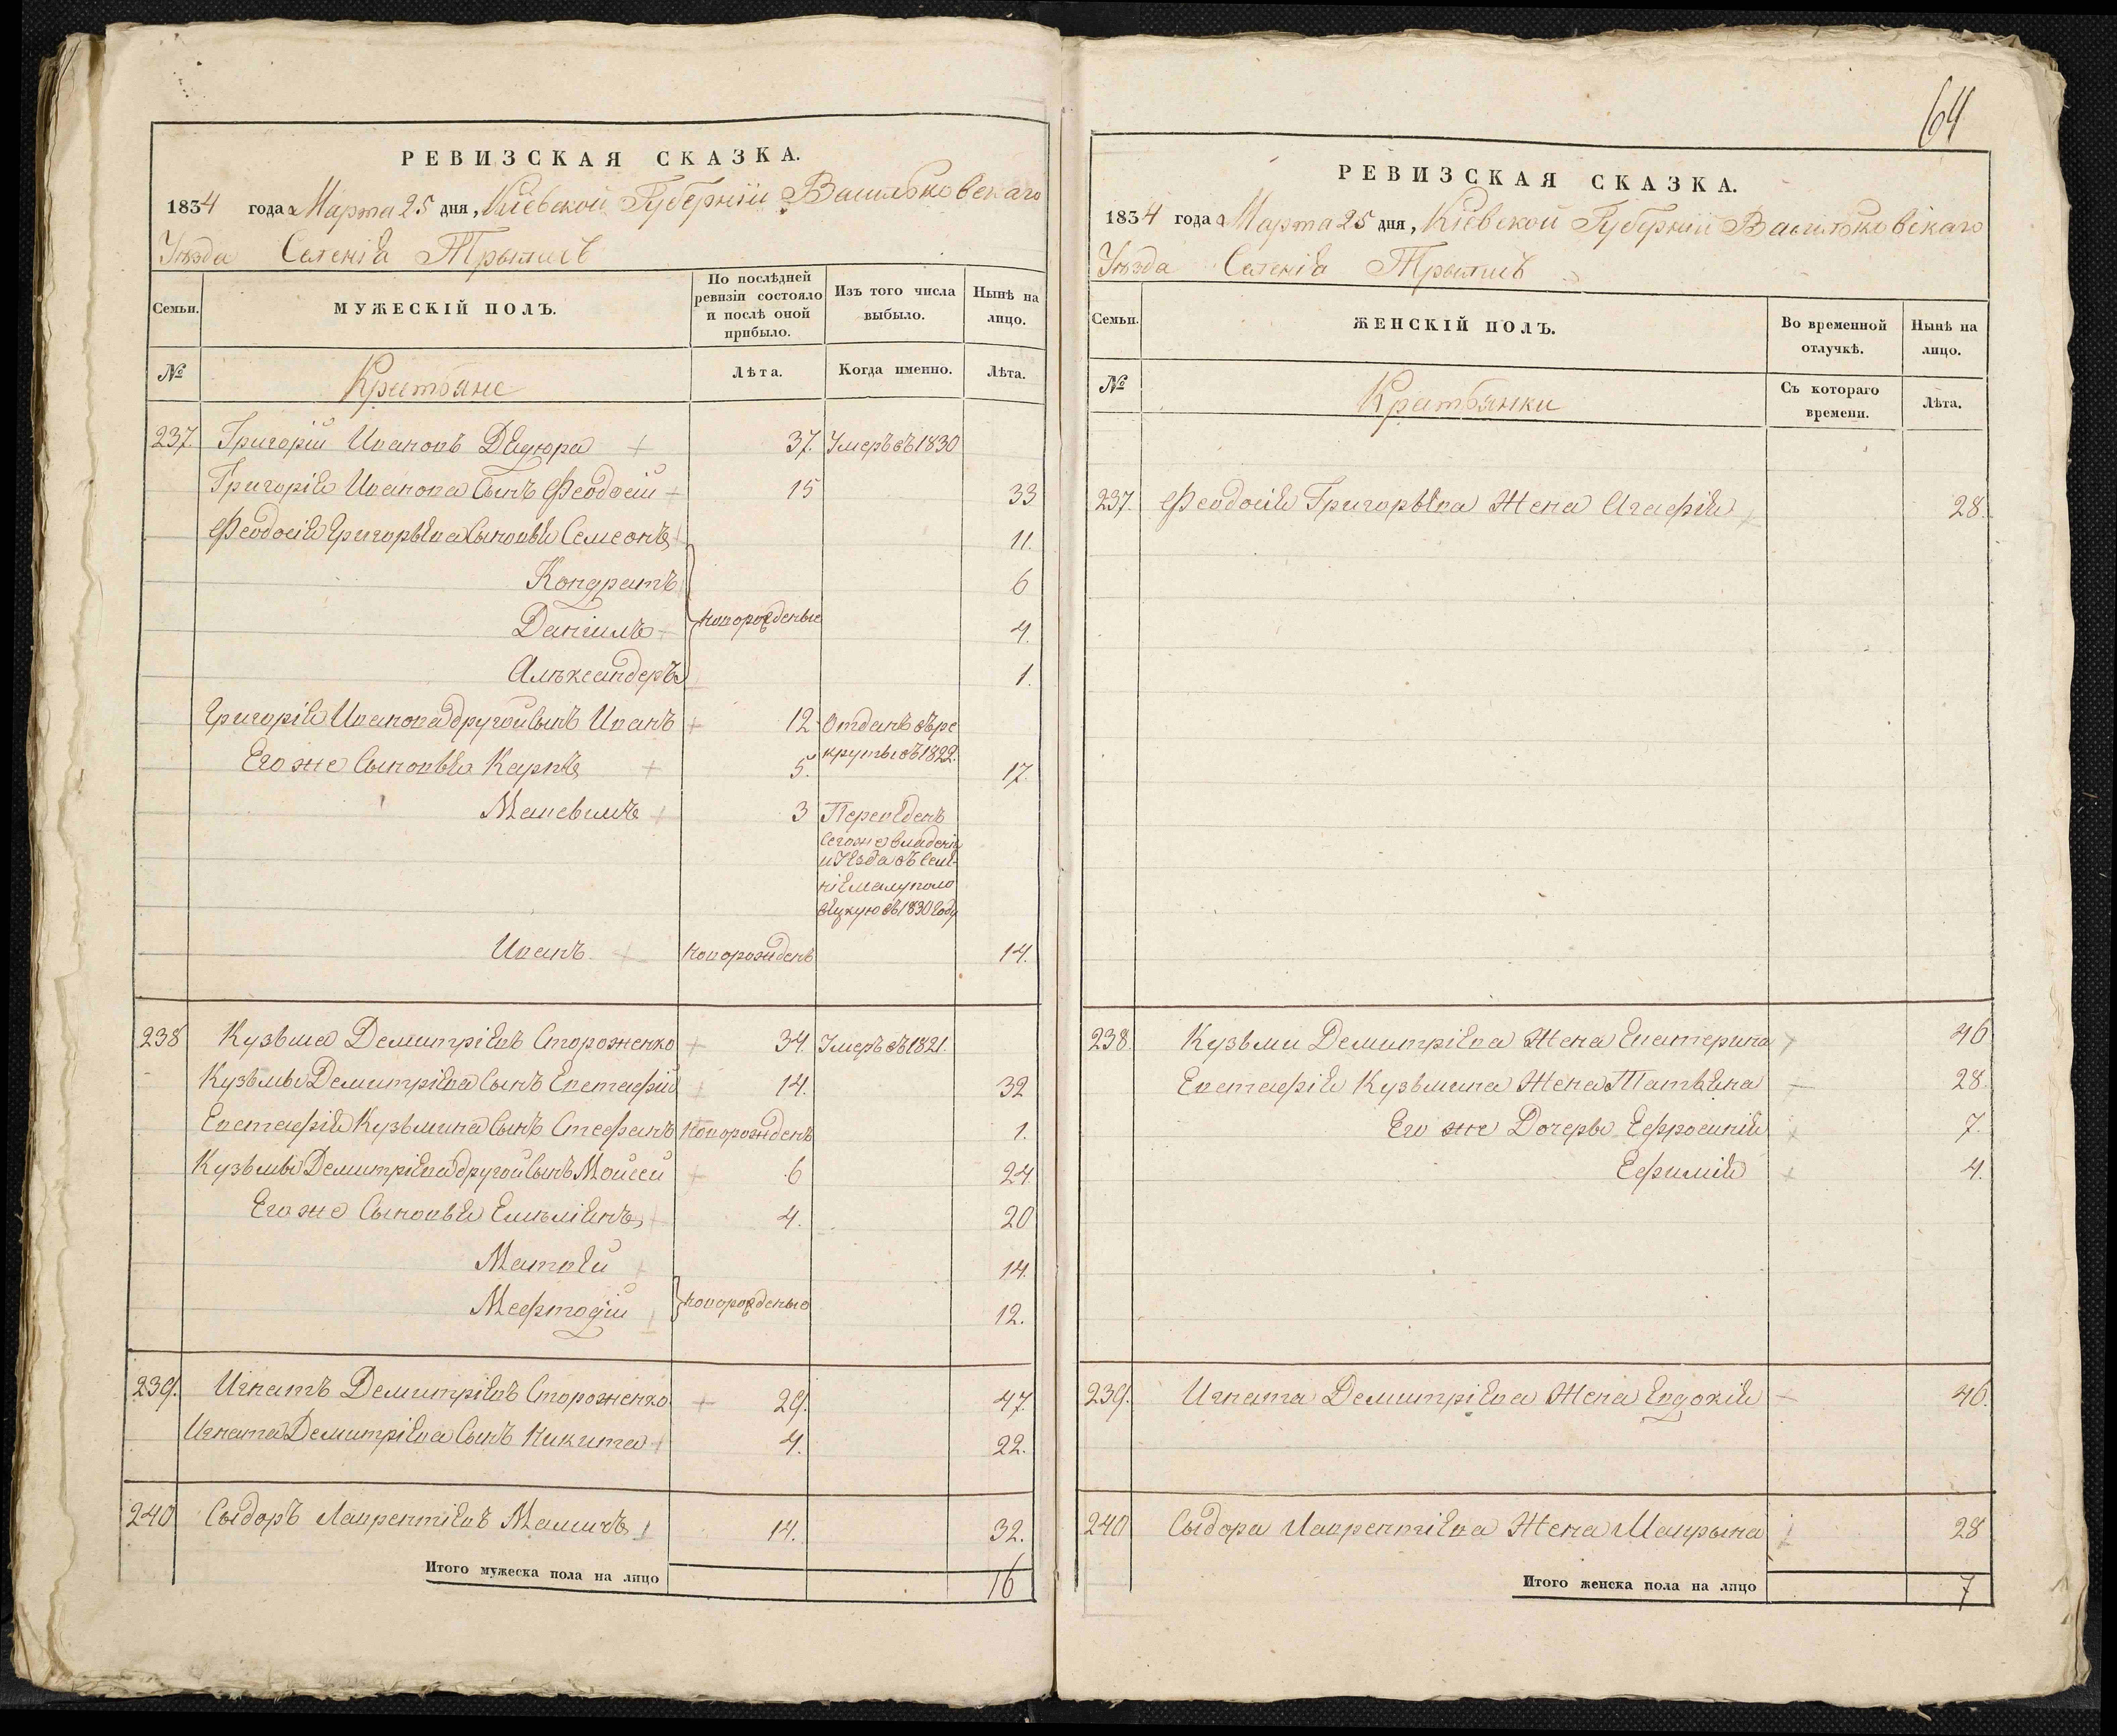 РЕВИЗСКАЯ СКАЗКА.
1834 года Марта 25 дня, Кіевской Губерніи Васильковскаго
Уѣзда Селенія Трылисъ
Семьи.
МУЖЕСКІЙ ПОЛЪ.
По послѣдней ревизіи состояло и послѣ оной прибыло.
Изъ того числа выбыло.
Нынѣ на лицо.
№
Крестьяне
Лѣта.
Когда именно.
Лѣта.
237 Григорій Ивановъ 37. Умеръ въ 1830
Григорія Иванова Сынъ Феодосій 15 33
Феодосія Григорьева Сыновья Семеонъ 11.
Кондратъ 6
Даніилъ новорожденые 4.
Александеръ 1.
Григорія Иванова другой Сынъ Иванъ 12 Отданъ въ ре
круты въ 1822.
Его же Сыновья Карпъ 5. 17.
3 Переведенъ
сегоже владенія
и Уезда въ Селе-
ніе Малуполо
вецкую въ 1830 году
Иванъ новорожденъ 14.
238 Кузьма Демитріевъ Стороженко 34. Умеръ въ 1821.
Кузьмы Демитріева Сынъ Евстафій 14. 32
Евстафія Кузьмина Сынъ Стефанъ новорожденъ 1.
Кузьмы Демитріева другой Сынъ Моисей 6 24
Его же Сыновья Емельянъ 4. 20
Матвей 14.
Мефтодій новорожденые 12.
239. Игнатъ Демитріевъ Стороженко 29. 47.
Игната Демитріева Сынъ Никита 4. 22.
240 Сыдоръ Лаврентіевъ 14. 32.
Итого мужеска пола на лицо 16
64
РЕВИЗСКАЯ СКАЗКА.
1834 года Марта 25 дня, Кіевской Губерніи Васильковскаго
Уѣзда Селенія Трылисъ
Семьи.
ЖЕНСКІЙ ПОЛЪ.
Во временной отлучкѣ.
Нынѣ на лицо.
№
Крестьянки
Съ котораго времени.
Лѣта.
237. Феодосія Григорьева Жена Агафія 28.
238. Кузьми Демитріева Жена Екатерина 46
Евстафія Кузьмина Жена Татьяна 28.
Его же Дочеры Ефросинія 7.
Ефимія 4.
239. Игната Демитріева Жена Евдокія 46.
240 Сыдора Лаврентіева Жена Маврына 28
Итого женска пола на лицо 7